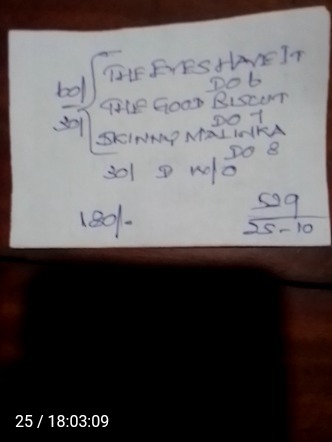 THE EYES HAVE IT
DO 6
60/
THE GOOD BISCUIT
30/
DO 7
SKINNY MALINKA
DO 8
30/ D W/O
180/-
529
25-10
25 / 18:03:09